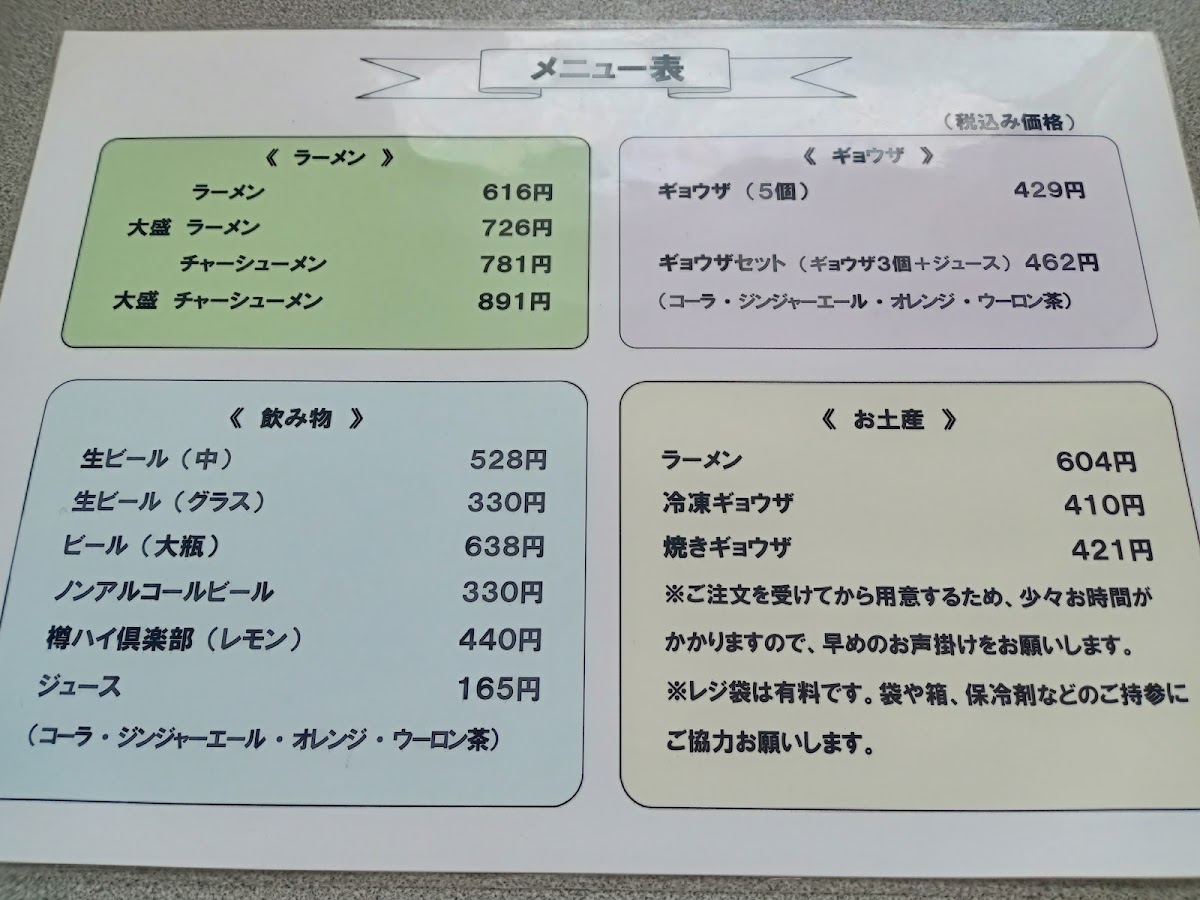 メニュー表
（税込み価格）
《 ラーメン 》
ラーメン 616円
大盛 ラーメン 726円
チャーシューメン 781円
大盛 チャーシューメン 891円
《 ギョウザ 》
ギョウザ（5個） 429円
ギョウザセット（ギョウザ3個＋ジュース） 462円
（コーラ・ジンジャーエール・オレンジ・ウーロン茶）
《 飲み物 》
生ビール（中） 528円
生ビール（グラス） 330円
ビール（大瓶） 638円
ノンアルコールビール 330円
樽ハイ倶楽部（レモン） 440円
ジュース 165円
（コーラ・ジンジャーエール・オレンジ・ウーロン茶）
《 お土産 》
ラーメン 604円
冷凍ギョウザ 410円
焼きギョウザ 421円
※ご注文を受けてから用意するため、少々お時間が
かかりますので、早めのお声掛けをお願いします。
※レジ袋は有料です。袋や箱、保冷剤などのご持参に
ご協力お願いします。